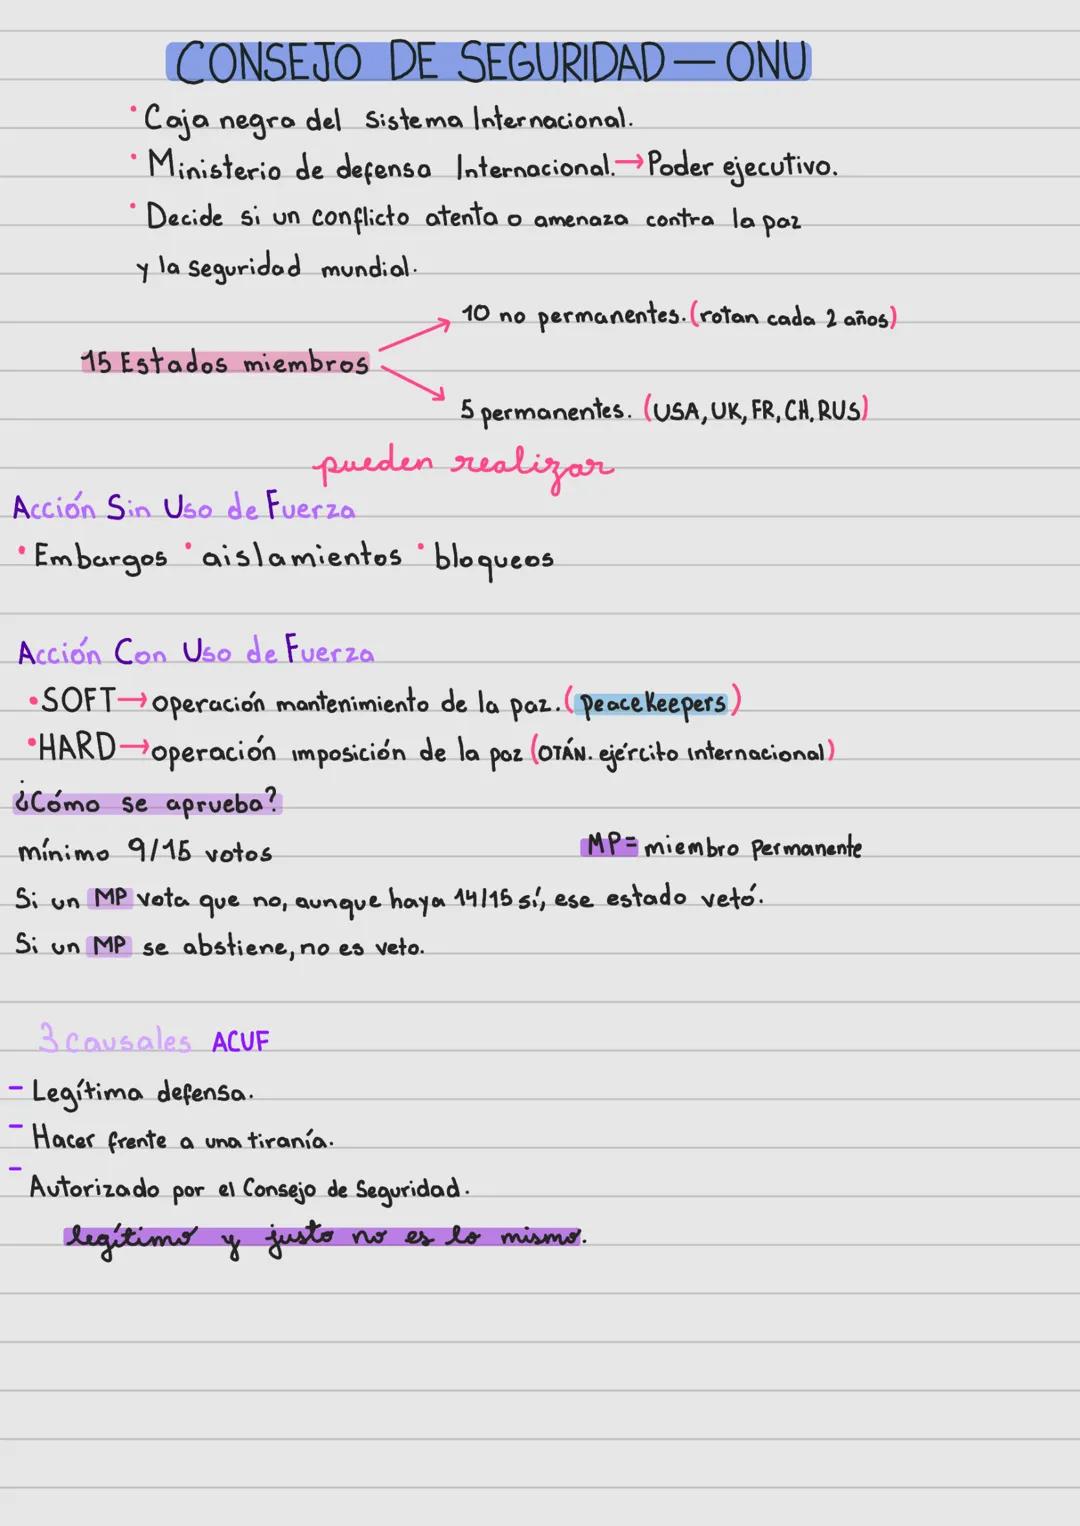 CONSEJO DE SEGURIDAD — ONU
• Caja negra del Sistema Internacional.
• Ministerio de defensa Internacional. → Poder ejecutivo.
• Decide si un conflicto atenta o amenaza contra la paz
y la seguridad mundial.
10 no permanentes. (rotan cada 2 años)
15 Estados miembros
5 permanentes. (USA, UK, FR, CH, RUS)
pueden realizar
Acción Sin Uso de Fuerza
• Embargos • aislamientos • bloqueos
Acción Con Uso de Fuerza
• SOFT → operación mantenimiento de la paz. (peaceKeepers)
• HARD → operación imposición de la paz (OTÁN. ejército internacional)
¿Cómo se aprueba?
mínimo 9/15 votos
MP = miembro permanente
Si un MP vota que no, aunque haya 14/15 sí, ese estado vetó.
Si un MP se abstiene, no es veto.
3 causales ACUF
- Legítima defensa.
- Hacer frente a una tiranía.
- Autorizado por el Consejo de Seguridad.
legítimo y justo no es lo mismo.